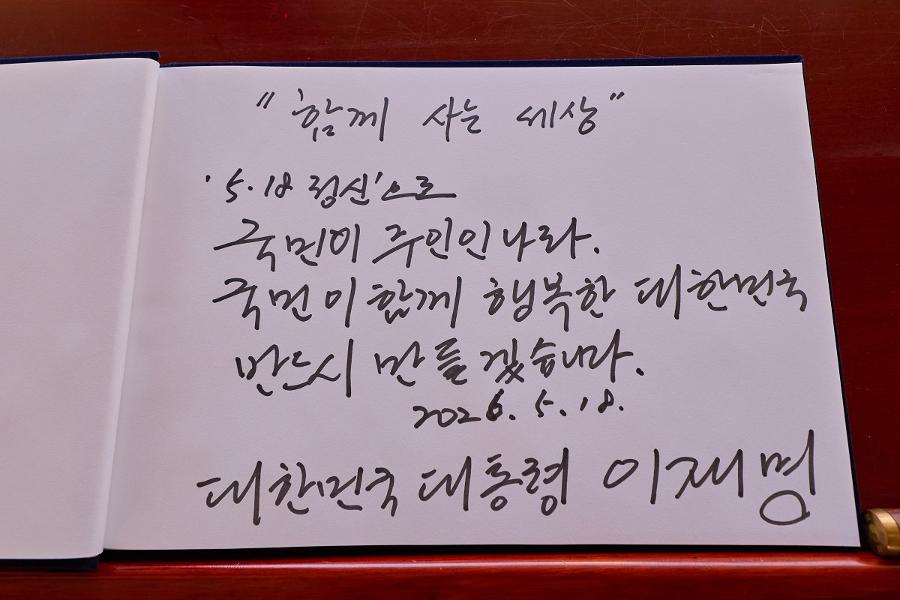 "함께 사는 세상"
'5·18 정신'으로
국민이 주인인 나라.
국민이 함께 행복한 대한민국
반드시 만들겠습니다.
2026. 5. 18.
대한민국 대통령 이재명